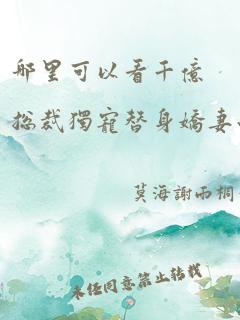 那里可以看千億
总裁獨寵替身嬌妻
莫海謝雨桐
未经同意禁止转载